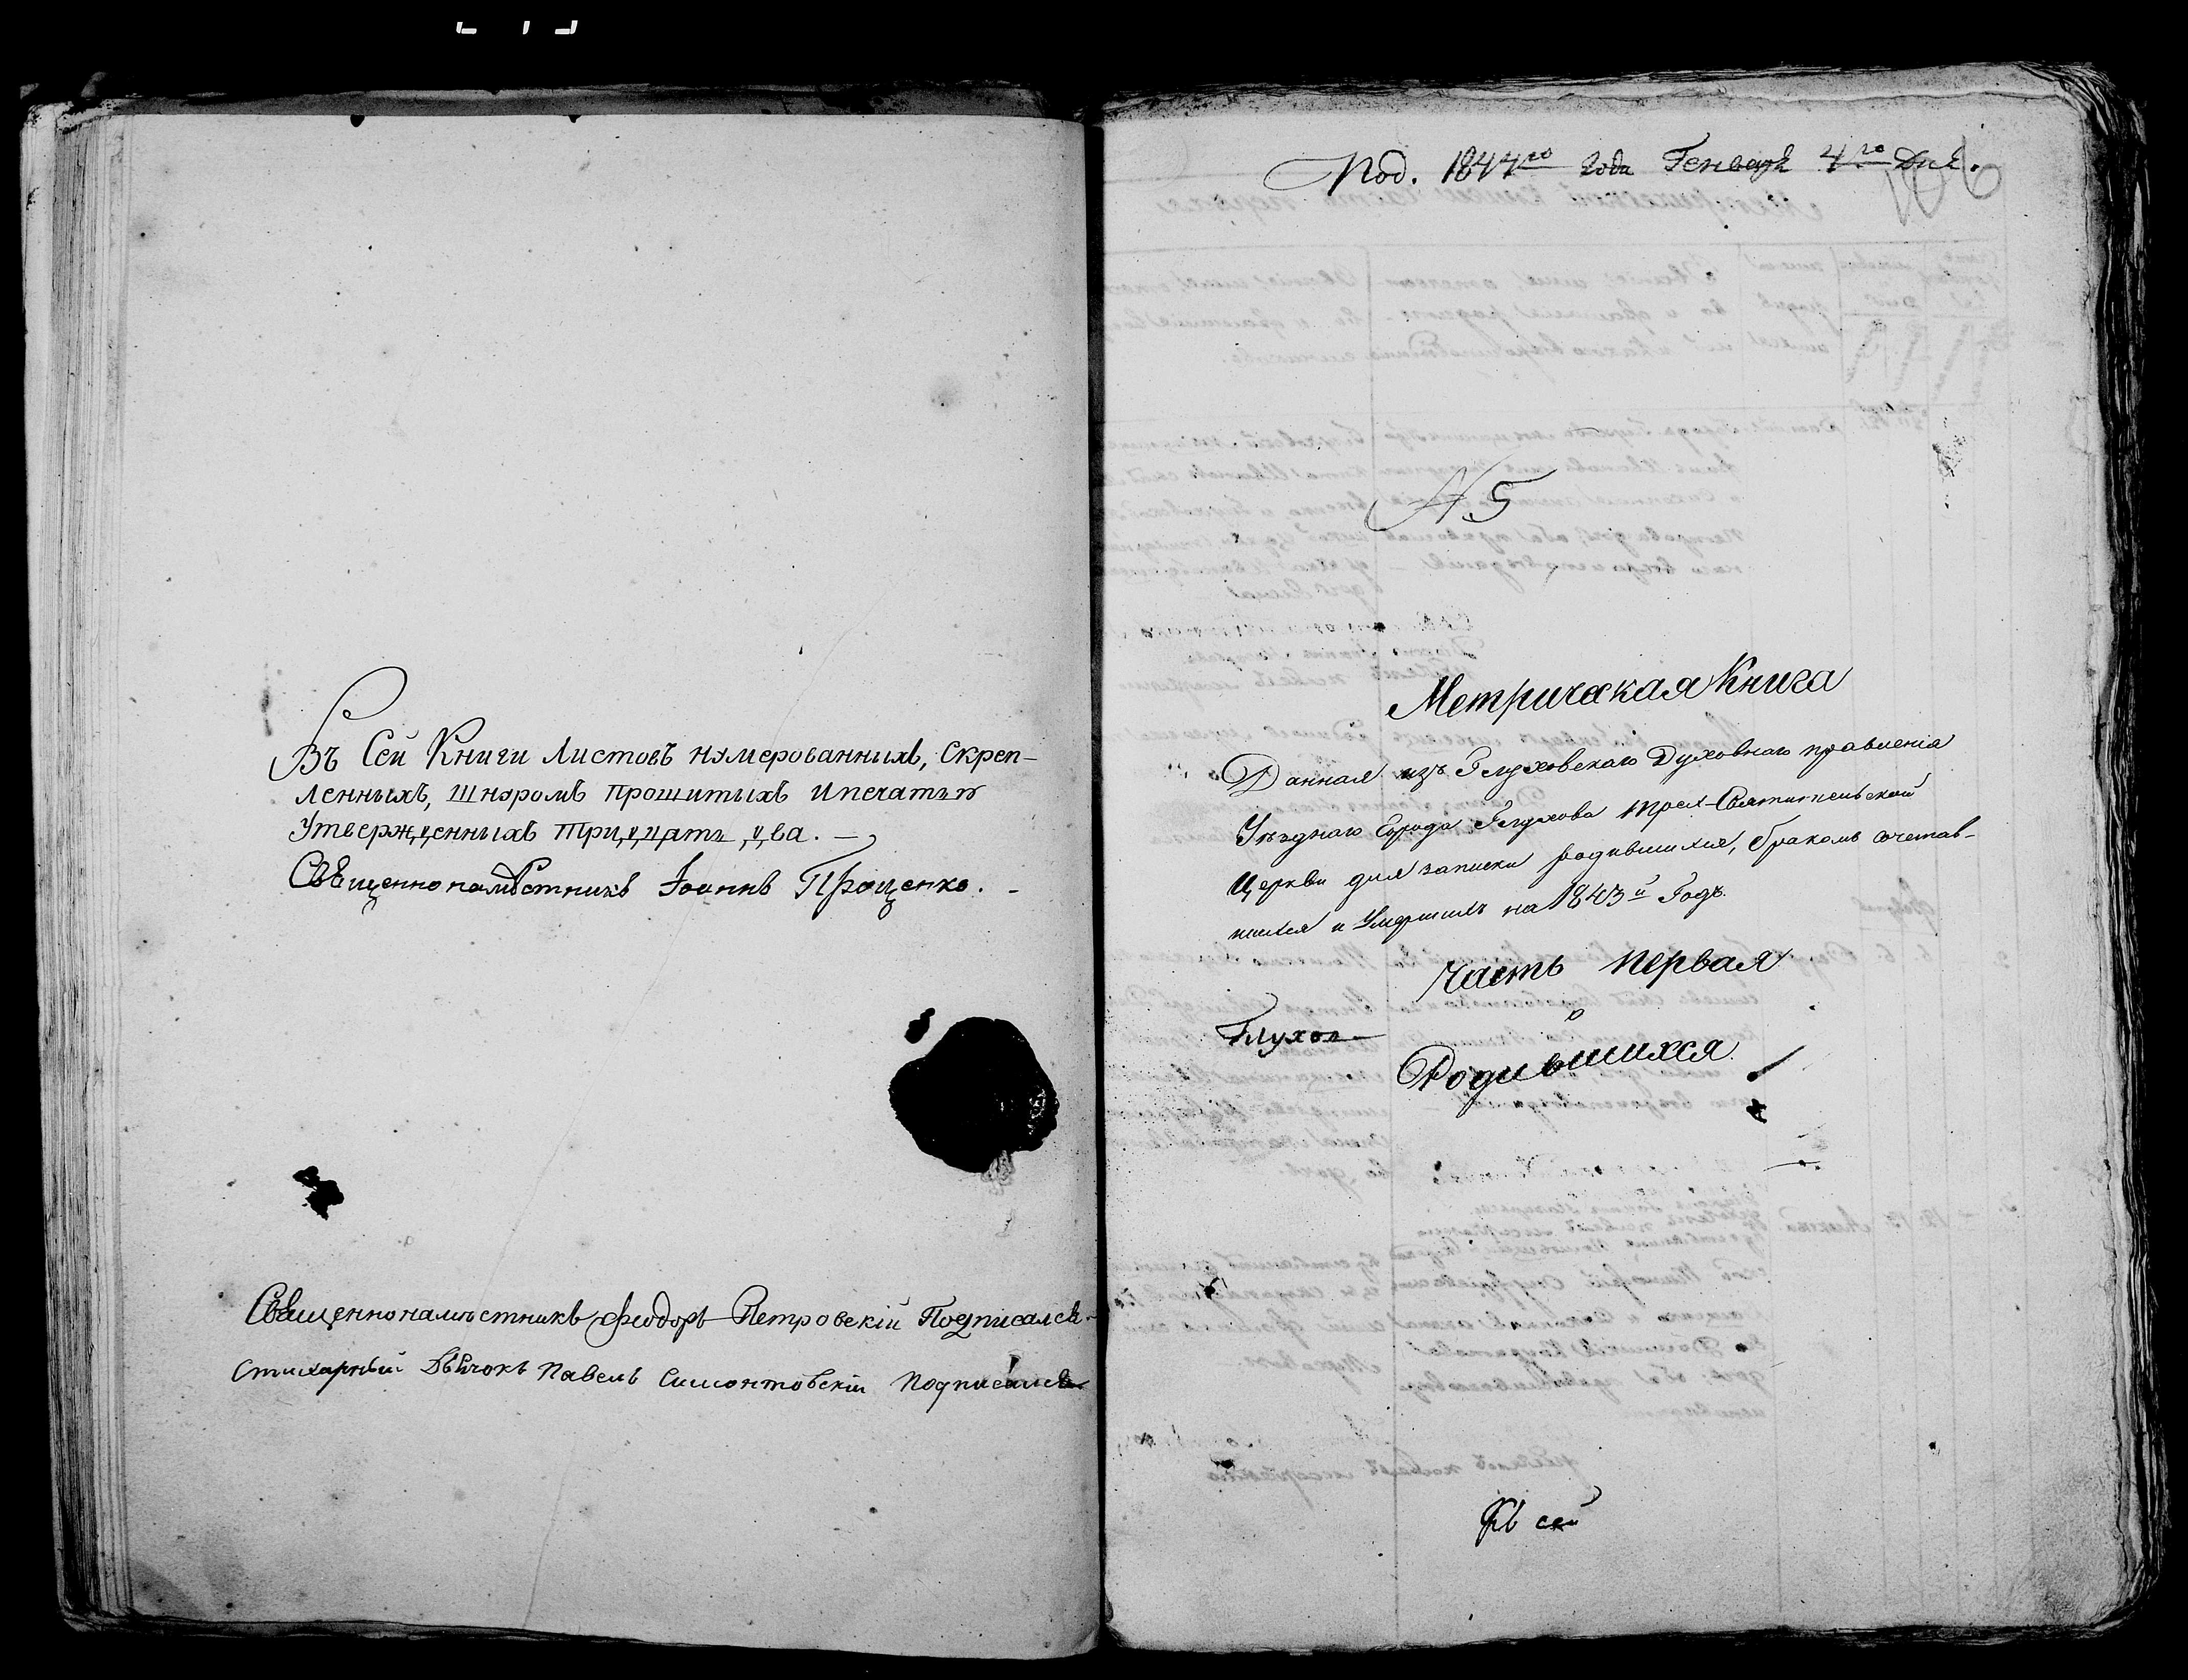 Въ Сей Книги Листовъ нумерованныхъ, Скреп-
ленныхъ, шнуромъ прошитыхъ и печатью
Утвержденныхъ тридцать два. —
Священнонамѣстникъ Іоаннъ Проценко. -
Священнонамѣстникъ Феодоръ Петровскій Подписался.
Стихарный Дьячокъ Павелъ Симонтовскій Подписался
Под. 1844го года Генваря 4го Дня.
106
№ 5
Метрическая Книга
Данная изъ Глуховскаго Духовнаго правленія
Уѣзднаго Города Глухова Трех-Святительской
Церкви для записки родившихся, бракомъ сочетав-
шихся и Умершихъ на 1843й Годъ.
Часть Первая
о
Глухов
Родившихся
Въ сей